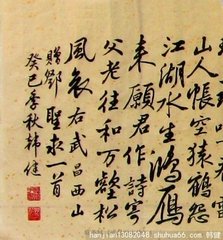 山人帳空猿鶴怨
江湖水生鴻雁
来願君作詩寄
父老往和萬壑松
風哀右武昌西山
贈鄧聖求一首
癸巳季秋韓健